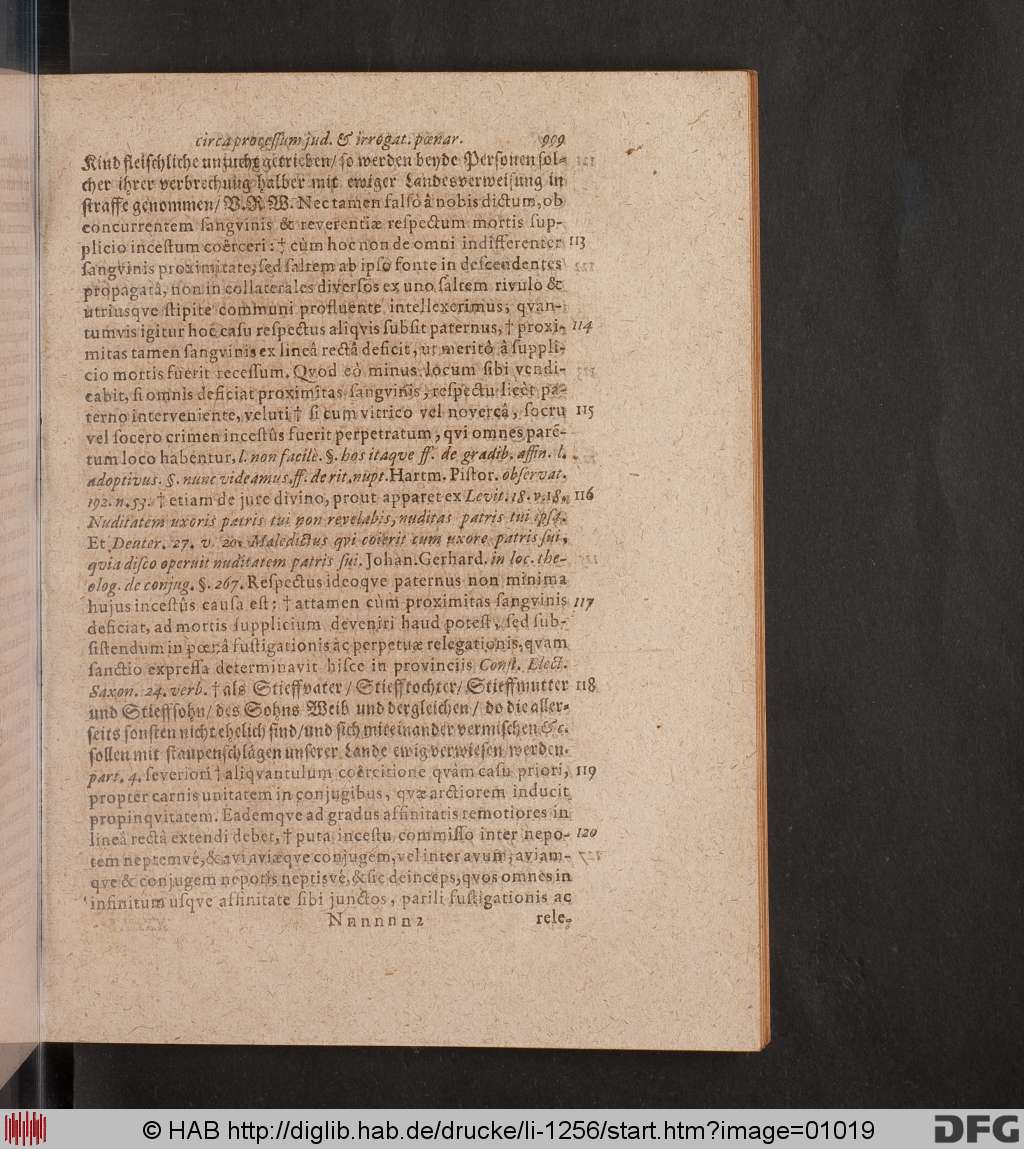 circa processum jud. & irrogat. pœnar. 999
Kind fleischliche unzucht getrieben/ so werden beyde Personen sol-
cher ihrer verbrechung halber mit ewiger Landesverweisung in
straffe genommen/ V. R. W. Nec tamen falsò â nobis dictum, ob
concurrentem sangvinis & reverentiæ respectum mortis sup-
plicio incestum coërceri: † cùm hoc non de omni indifferenter 113
sangvinis proximitate, sed saltem ab ipso fonte in descendentes
propagatâ, non in collaterales diversos ex uno saltem rivulo &
utriusqve stipite communi profluente intellexerimus, qvan-
tumvis igitur hoc casu respectus aliqvis subsit paternus, † proxi- 114
mitas tamen sangvinis ex lineâ rectâ deficit, ut meritò â suppli-
cio mortis fuerit recessum. Qvod eò minus locum sibi vendi-
cabit, si omnis deficiat proximitas sangvinis, respectu licèt pa-
terno interveniente, veluti † si cum vitrico vel novercâ, socru 115
vel socero crimen incestûs fuerit perpetratum, qvi omnes parē-
tum loco habentur, l. non facilè. §. hos itaque ff. de gradib. affin. l.
adoptivus. §. nunc videamus. ff. de rit. nupt. Hartm. Pistor. observat.
192. n. 53. † etiam de jure divino, prout apparet ex Levit. 18. v. 18. 116
Nuditatem uxoris patris tui non revelabis, nuditas patris tui ipsa.
Et Deuter. 27. v. 20. Maledictus qvi coierit cum uxore patris sui,
qvia disco operuit nuditatem patris sui. Johan. Gerhard. in loc. the-
olog. de conjug. §. 267. Respectus ideoqve paternus non minima
hujus incestûs causa est: † attamen cùm proximitas sangvinis 117
deficiat, ad mortis supplicium deveniri haud potest, sed sub-
sistendum in pœnâ fustigationis ac perpetuæ relegationis, qvam
sanctio expressa determinavit hisce in provinciis Const. Elect.
Saxon. 24. verb. † als Stieffvater/ Stiefftochter/ Stieffmutter 118
und Stieffsohn/ des Sohns Weib und dergleichen/ do die aller-
seits sonsten nicht ehelich sind/ und sich mit einander vermischen &c.
sollen mit staupenschlägen unserer Lande ewig verwiesen werden.
part. 4. severiori † aliqvantulum coërcitione qvàm casu priori, 119
propter carnis unitatem in conjugibus, qvæ arctiorem inducit
propinqvitatem. Eademqve ad gradus affinitatis remotiores in
lineâ rectâ extendi debet, † puta incestu commisso inter nepo- 120
tem neptemvé, & avi aviæqve conjugem, vel inter avum, aviam-
qve & conjugem nepotis neptisvé, & sic deinceps, qvos omnes in
infinitum usqve affinitate sibi junctos, parili fustigationis ac
Nnnnnnn 2 rele-
© HAB http://diglib.hab.de/drucke/li-1256/start.htm?image=01019
DFG